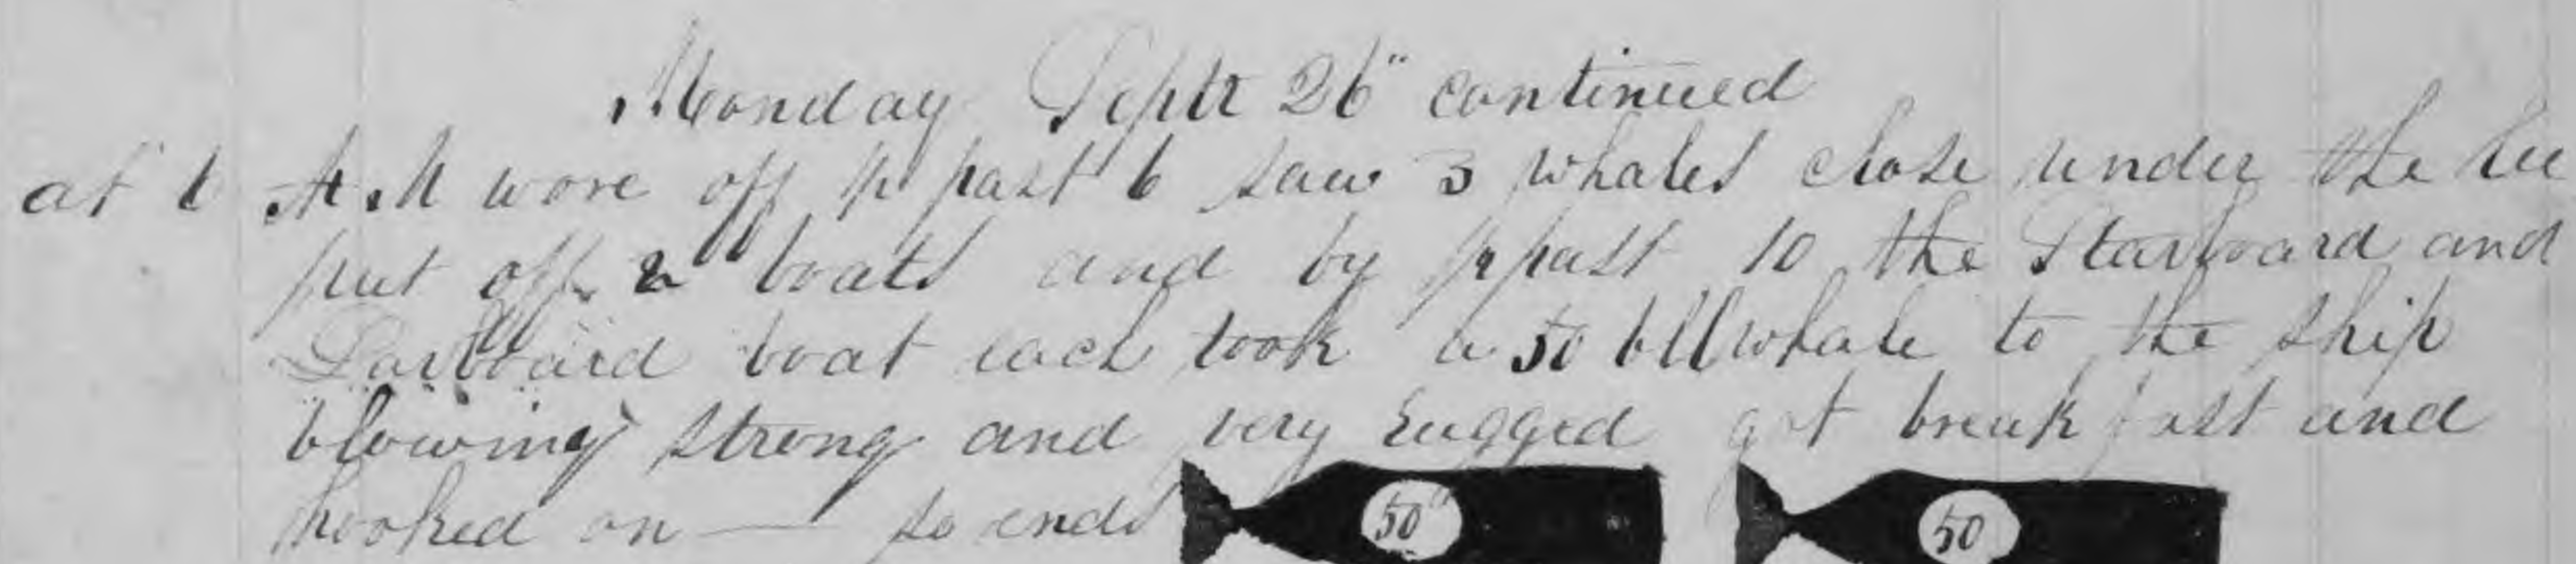 Monday Septr 26" continued
at 6 A.M wore off ½ past 6 saw 3 whales close under the lee
put off 2 boats and by ½ past 10 the Starboard and
Larboard boat each took a 50 bll whale to the ship
blowing strong and very Rugged got breakfast and
hooked on — so ends
50 50